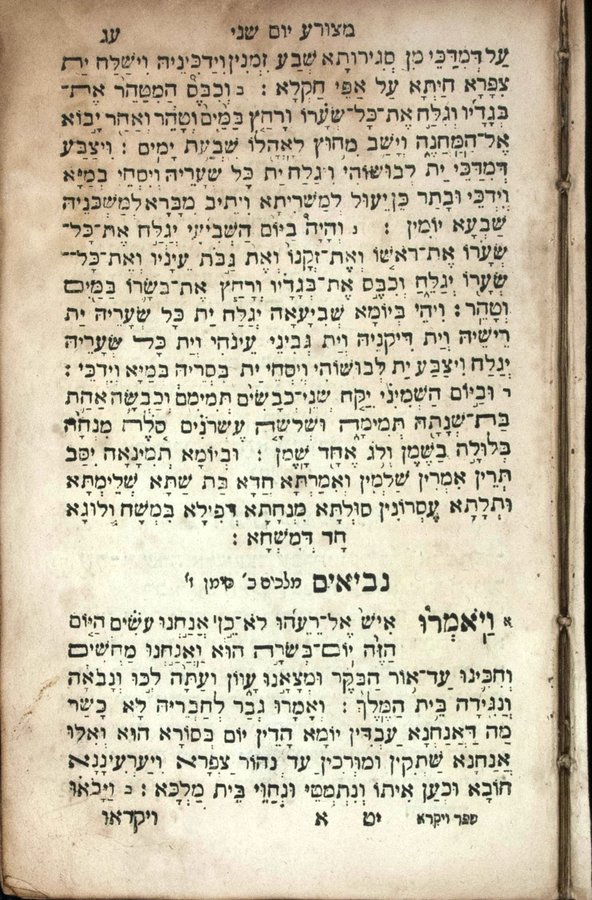 מצורע יום שני עג
עַל דְּמִדַּכֵּי מִן סְגִירוּתָא שְׁבַע זִמְנִין וִידַכִּינֵיהּ וִישַׁלַּח יַת
צִפְּרָא חַיְתָא עַל אַפֵּי חַקְלָא : ח וְכִבֶּס הַמִּטַּהֵר אֶת־
בְּגָדָיו וְגִלַּח אֶת־כָּל־שְׂעָרוֹ וְרָחַץ בַּמַּיִם וְטָהֵר וְאַחַר יָבוֹא
אֶל־הַמַּחֲנֶה וְיָשַׁב מִחוּץ לְאָהֳלוֹ שִׁבְעַת יָמִים : וִיצַבַּע
דְּמִדַּכֵּי יַת לְבוּשׁוֹהִי וִיגַלַּח יַת כָּל שַׂעֲרֵיהּ וְיַסְחֵי בְמַיָּא
וְיִדְכֵּי וּבָתַר כֵּן יֵעוּל לְמַשְׁרִיתָא וְיִתֵיב מִבָּרָא לְמַשְׁכְּנֵיהּ
שַׁבְעָא יוֹמִין : ט וְהָיָה בַיּוֹם הַשְּׁבִיעִי יְגַלַּח אֶת־כָּל־
שְׂעָרוֹ אֶת־רֹאשׁוֹ וְאֶת־זְקָנוֹ וְאֵת גַּבֹּת עֵינָיו וְאֶת־כָּל־
שְׂעָרוֹ יְגַלֵּחַ וְכִבֶּס אֶת־בְּגָדָיו וְרָחַץ אֶת־בְּשָׂרוֹ בַּמַּיִם
וְטָהֵר : וִיהֵי בְּיוֹמָא שְׁבִיעָאָה יְגַלַּח יַת כָּל שַׂעֲרֵיהּ יַת
רֵישֵׁיהּ וְיַת דִּיקְנֵיהּ וְיַת גְּבִינֵי עֵינֹהִי וְיַת כָּל שַׂעֲרֵיהּ
יְגַלַּח וִיצַבַּע יַת לְבוּשׁוֹהִי וְיַסְחֵי יַת בִּסְרֵיהּ בְּמַיָּא וְיִדְכֵּי :
י וּבַיּוֹם הַשְּׁמִינִי יִקַּח שְׁנֵי־כְבָשִׂים תְּמִימִם וְכַבְשָׂה אַחַת
בַּת־שְׁנָתָהּ תְּמִימָה וּשְׁלֹשָׁה עֶשְׂרֹנִים סֹלֶת מִנְחָה
בְּלוּלָה בַשֶּׁמֶן וְלֹג אֶחָד שָׁמֶן : וּבְיוֹמָא תְמִינָאָה יִסַּב
תְּרֵין אִמְּרִין שַׁלְמִין וְאִמַּרְתָּא חֲדָא בַּת שַׁתָּא שְׁלֶימְתָּא
וּתְלָתָא עֶסְרוֹנִין סוּלְתָּא מִנְחָתָא דְּפִילָא בִמְשַׁח וְלוּגָא
חַד דְּמִשְׁחָא :
נביאים מלכים ב׳ סימן ז׳
א וַיֹּאמְרוּ אִישׁ אֶל־רֵעֵהוּ לֹא־כֵן אֲנַחְנוּ עֹשִׂים הַיּוֹם
הַזֶּה יוֹם־בְּשֹׂרָה הוּא וַאֲנַחְנוּ מַחְשִׁים
וְחִכִּינוּ עַד־אוֹר הַבֹּקֶר וּמְצָאָנוּ עָווֹן וְעַתָּה לְכוּ וְנָבֹאָה
וְנַגִּידָה בֵּית הַמֶּלֶךְ : וַאֲמָרוּ גְבַר לְחַבְרֵיהּ לָא כָשַׁר
מַה דַּאֲנַחְנָא עָבְדִין יוֹמָא הָדֵין יוֹם בְּסוֹרָא הוּא וְאִלּוּ
אֲנַחְנָא שָׁתְקִין וּמוֹרְכִין עַד נְהוֹר צַפְרָא וִיעַרְעִינָנָא
חוֹבָא וּכְעַן אִיתוֹ וְנִתְמְטֵי וּנְחַוֵּי בֵּית מַלְכָּא : ב וַיָּבֹאוּ
ספר ויקרא יט א ויקראו